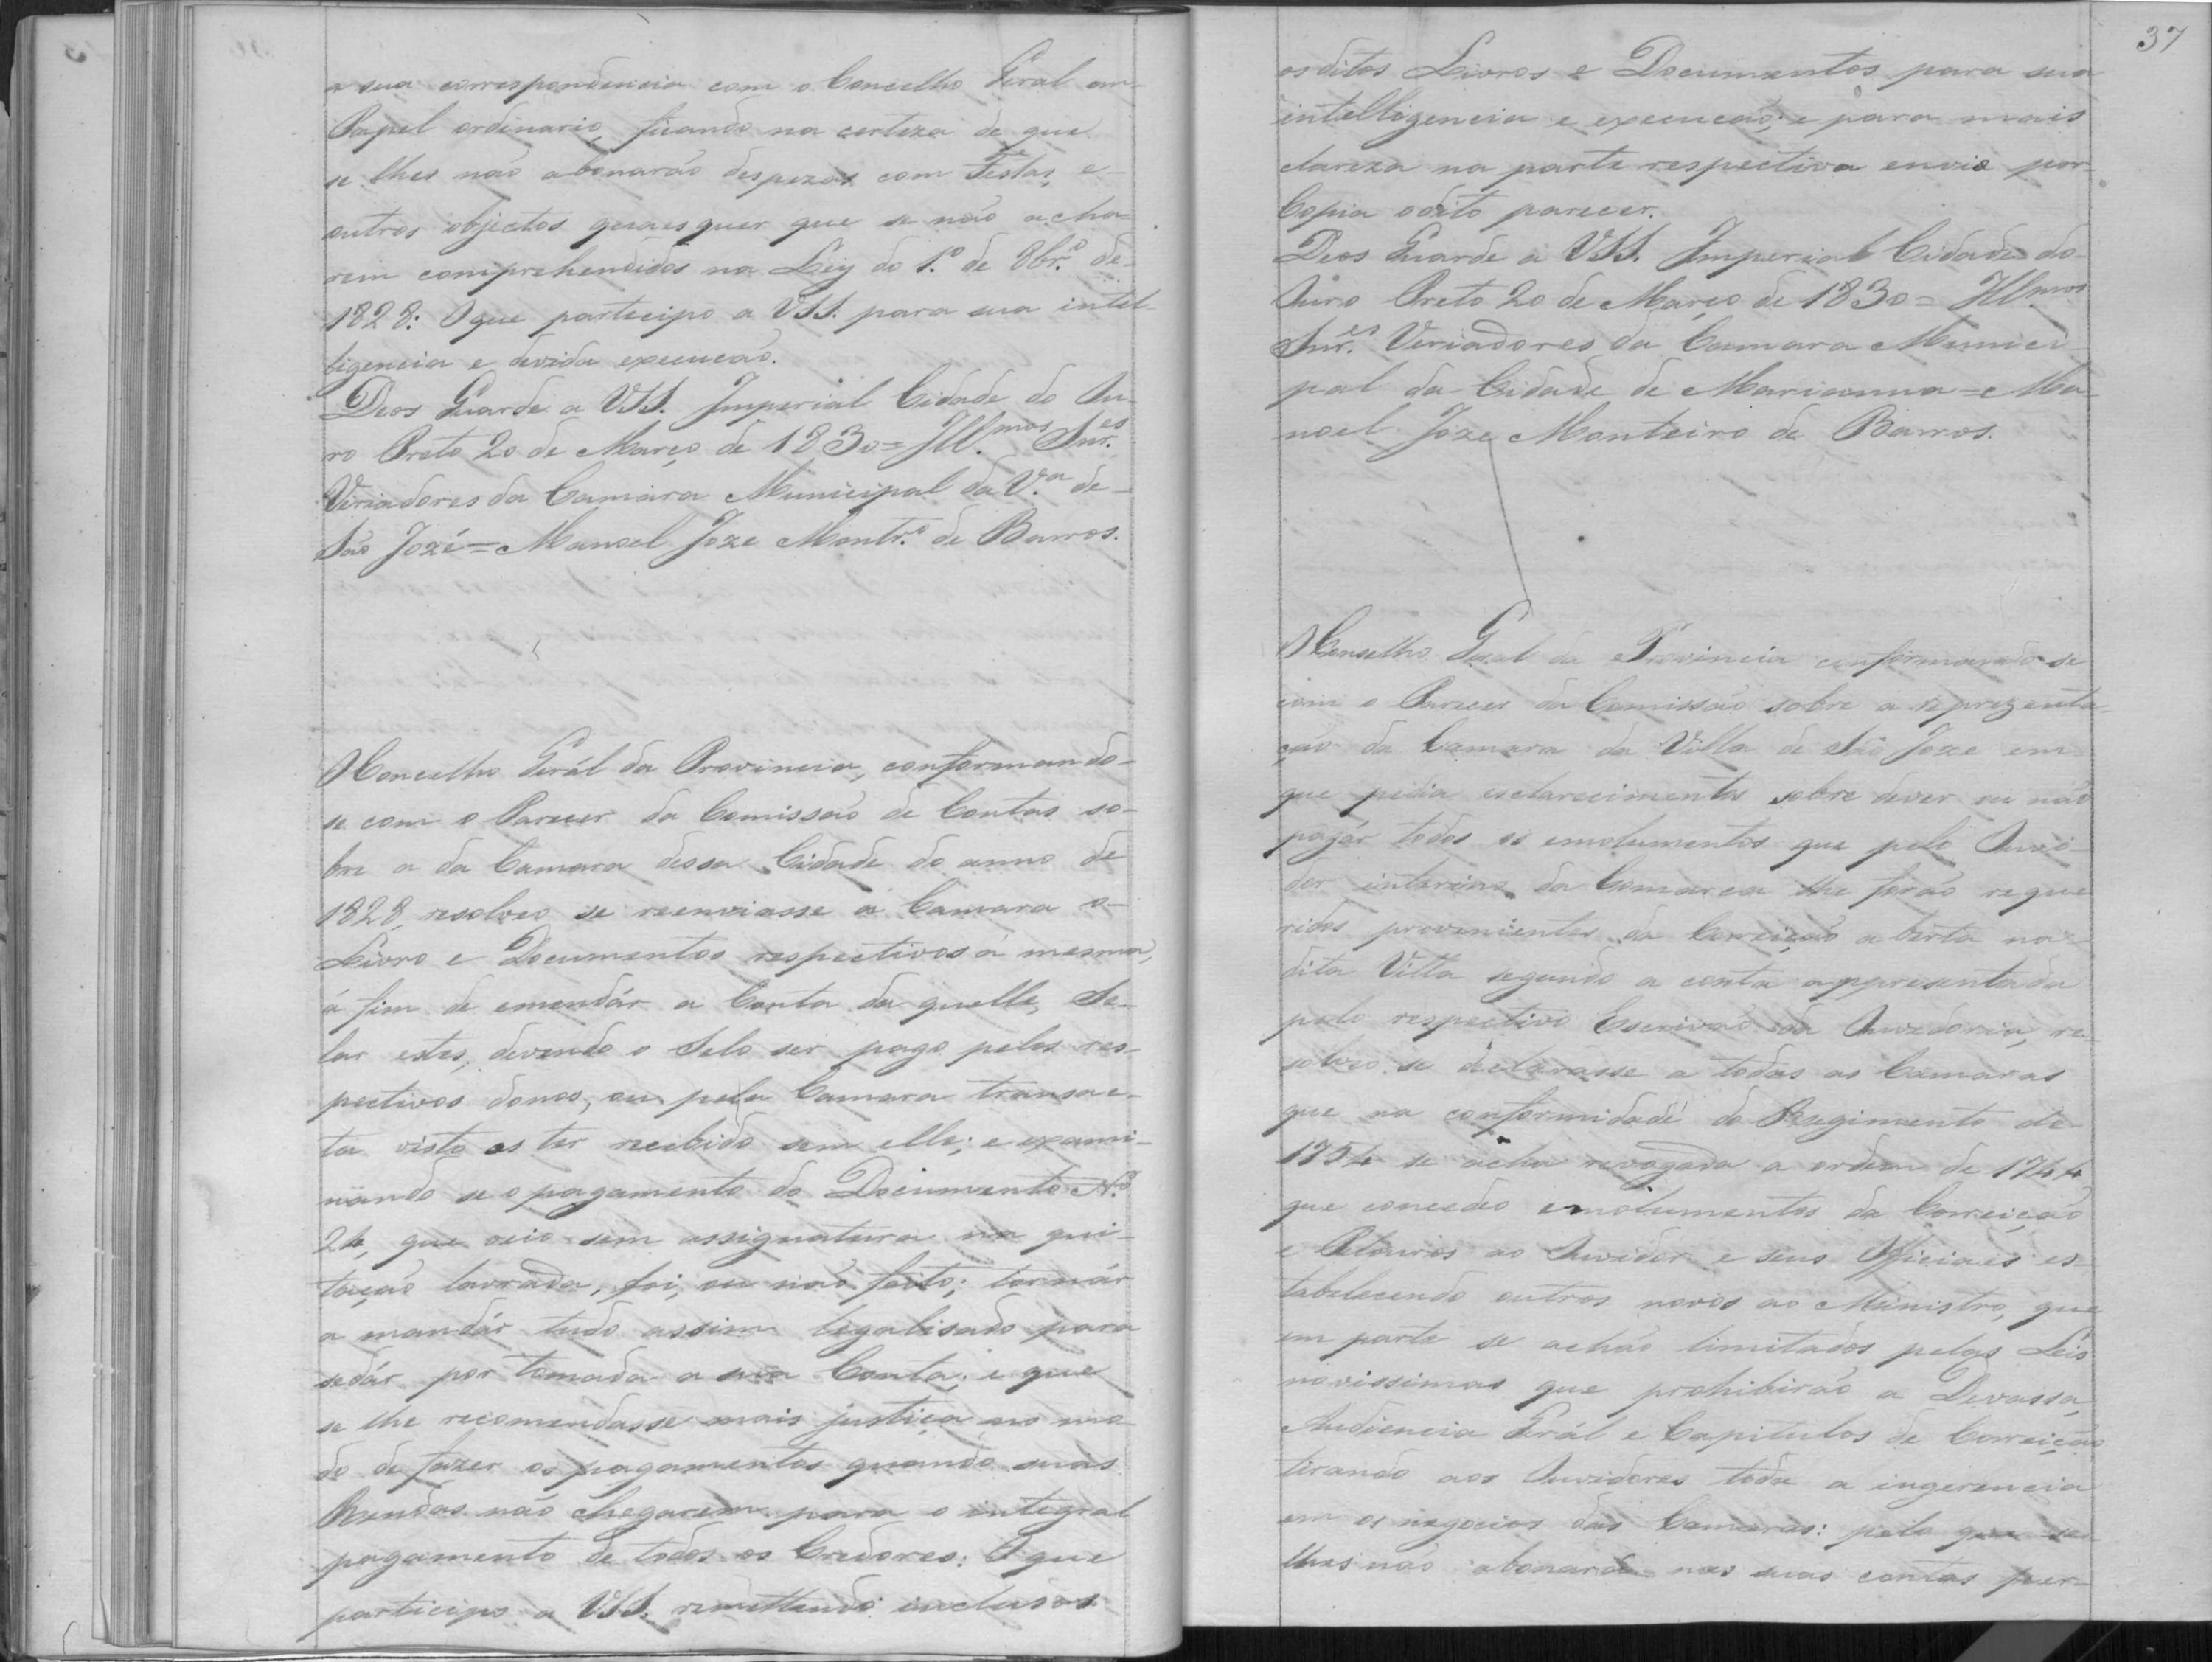 a sua correspondencia com o Concelho Geral em
Papel ordinario, ficando na certeza de que
se lhes não abonarão despezas com Festas, e
outros objectos quaesquer que se não acha-
rem comprehendidos na Ley do 1.º de 8br.º de
1828: O que participo a VSS. para sua intel-
ligencia e devida execução.
Deos Guarde a VSS. Imperial Cidade do Ou-
ro Preto 20 de Março de 1830 = Ill.mos Snr.es
Veriadores da Camara Municipal da V.ª de
São Jozé = Manoel Joze Montr.º de Barros.
O Concelho Gerál da Provincia, conformando-
se com o Parecer da Comissão de Contas so-
bre a da Camara dessa Cidade do anno de
1828, resolveo se reenviasse á Camara o
Livro e Documentos respectivos á mesma,
á fim de emendár a Conta da quelle, Se-
lar estes, devendo o Selo ser pago pelos res-
pectivos donos, ou pela Camara transac-
ta visto os ter recebido sem elle; e exami-
nando se o pagamento do Documento N.º
24, que veio sem assignatura na qui-
tação lavrada, foi, ou não feito; tornár
a mandár tudo assim legalisado para
se dár por tomada a sua Conta; e que
se lhe recomendasse mais justiça no mo-
do de fazer os pagamentos quando suas
Rendas não chegarem para o integral
pagamento de todos os Credores: O que
participo a VSS. remettendo inclusos
37
os ditos Livros e Documentos para sua
intelligencia e execução; e para mais
clareza na parte respectiva envio por
Copia o dito parecer.
Deos Guarde a VSS. Imperial Cidade do
Ouro Preto 20 de Março de 1830 = Ill.mos
Snr.es Veriadores da Camara Munici
pal da Cidade de Marianna = Ma
noel Joze Monteiro de Barros.
O Conselho Geral da Provincia conformando se
com o Parecer da Comissão sobre a reprezenta-
ção da Camara da Villa de São Joze em
que pedia esclarecimentos sobre dever ou não
pagár todos os emolumentos que pelo Ouvi
dor interino da Comarca lhe forão reque
ridos provenientes da Correição aberta na
dita Villa segundo a conta appresentada
pelo respectivo Escrivão da Ouvedoria, re
solveo se declarasse a todas as Camaras
que na conformidade do Regimento de
1754 se acha revogada a ordem de 1744
que concedeo emolumentos da Correição
e Pelouros ao Ouvidor e seus Officiaes es-
tabelecendo outros novos ao Ministro, que
em parte se achão limitados pelas Leis
novissimas que prohibirão a Devassa,
Audiencia Gerál e Capitulos de Correição
tirando aos Ouvidores toda a ingerencia
em os negocios das Camaras: pelo que se
lhes não abonará nas suas contas per-